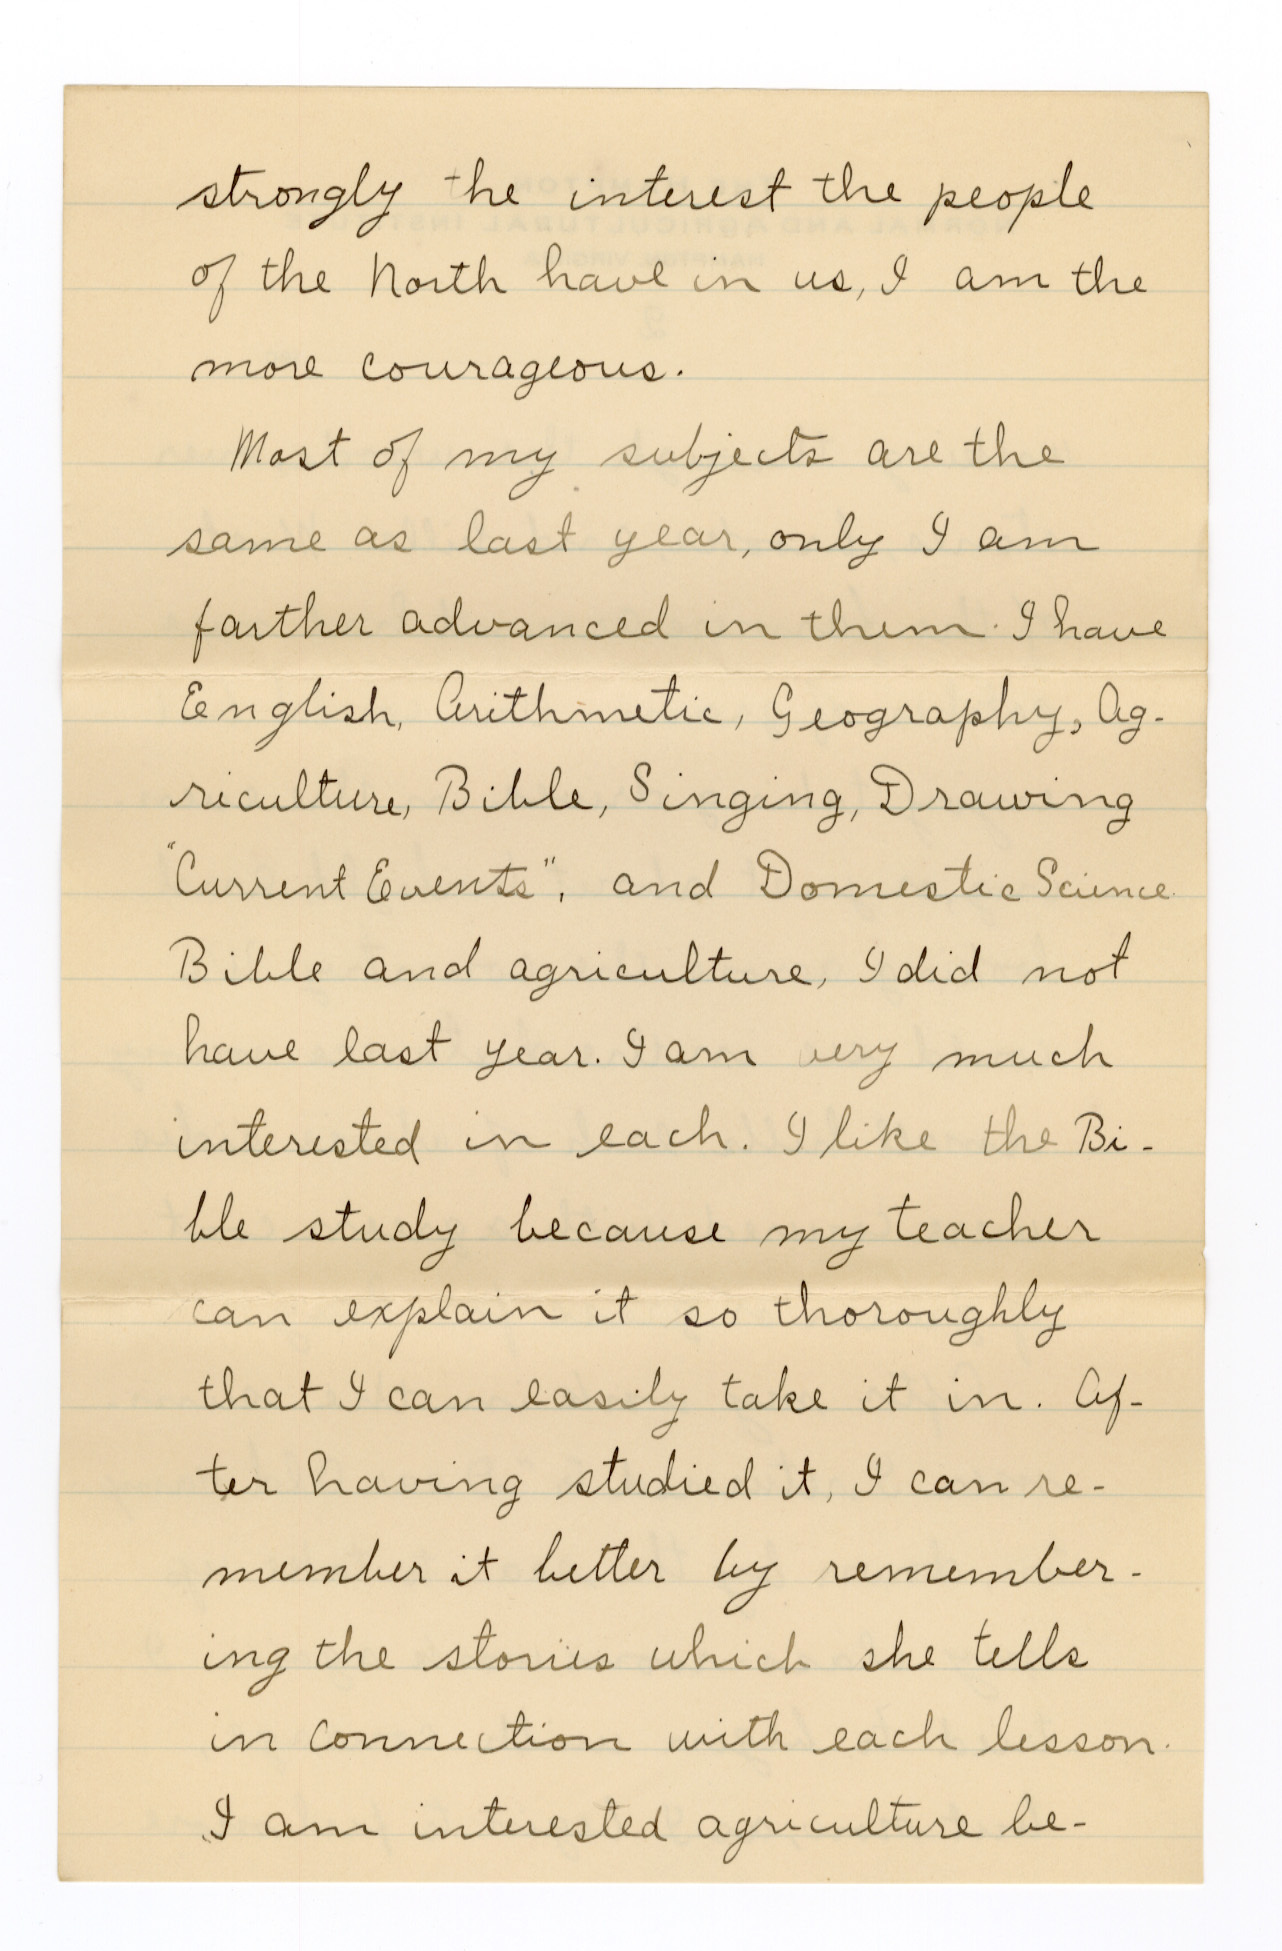 strongly the interest the people
of the North have in us, I am the
more courageous.
Most of my subjects are the
same as last year, only I am
farther advanced in them. I have
English, Arithmetic, Geography, Ag-
riculture, Bible, Singing, Drawing
"Current Events", and Domestic Science.
Bible and agriculture, I did not
have last year. I am very much
interested in each. I like the Bi-
ble study because my teacher
can explain it so thoroughly
that I can easily take it in. Af-
ter having studied it, I can re-
member it better by remember-
ing the stories which she tells
in connection with each lesson.
I am interested agriculture be-